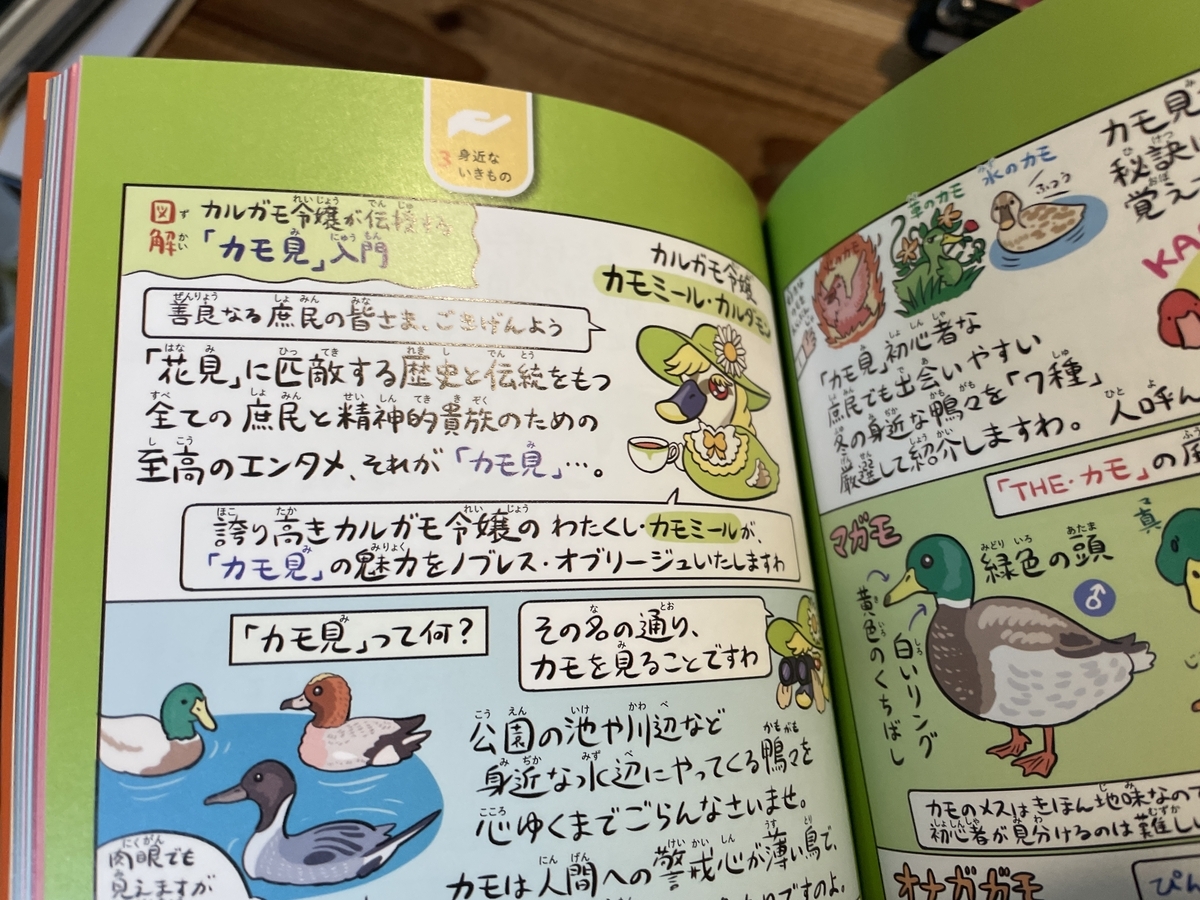 3 身近な
いきもの
図解
カルガモ令嬢が伝授する
「カモ見」入門
カルガモ令嬢
カモミール・カルダモン
善良なる庶民の皆さま、ごきげんよう
「花見」に匹敵する歴史と伝統をもつ
全ての庶民と精神的貴族のための
至高のエンタメ、それが「カモ見」…。
誇り高きカルガモ令嬢のわたくし・カモミールが、
「カモ見」の魅力をノブレス・オブリージュいたしますわ
「カモ見」って何?
その名の通り、
カモを見ることですわ
公園の池や川辺など
身近な水辺にやってくる鴨々を
心ゆくまでごらんなさいませ。
カモは人間への警戒心が薄い鳥で、
肉眼でも
見えますが
カモ見
秘訣
覚え
草のカモ
水のカモ
ふつう
「カモ見」初心者な
庶民でも出会いやすい
冬の身近な鴨々を「7種」
厳選して紹介しますわ。
人呼ん
「THE・カモ」の
マガモ
緑色の頭
♂
黄色のくちばし
白いリング
カモのメスはきほん地味なので
初心者が見分けるのは難し
オナガガモ